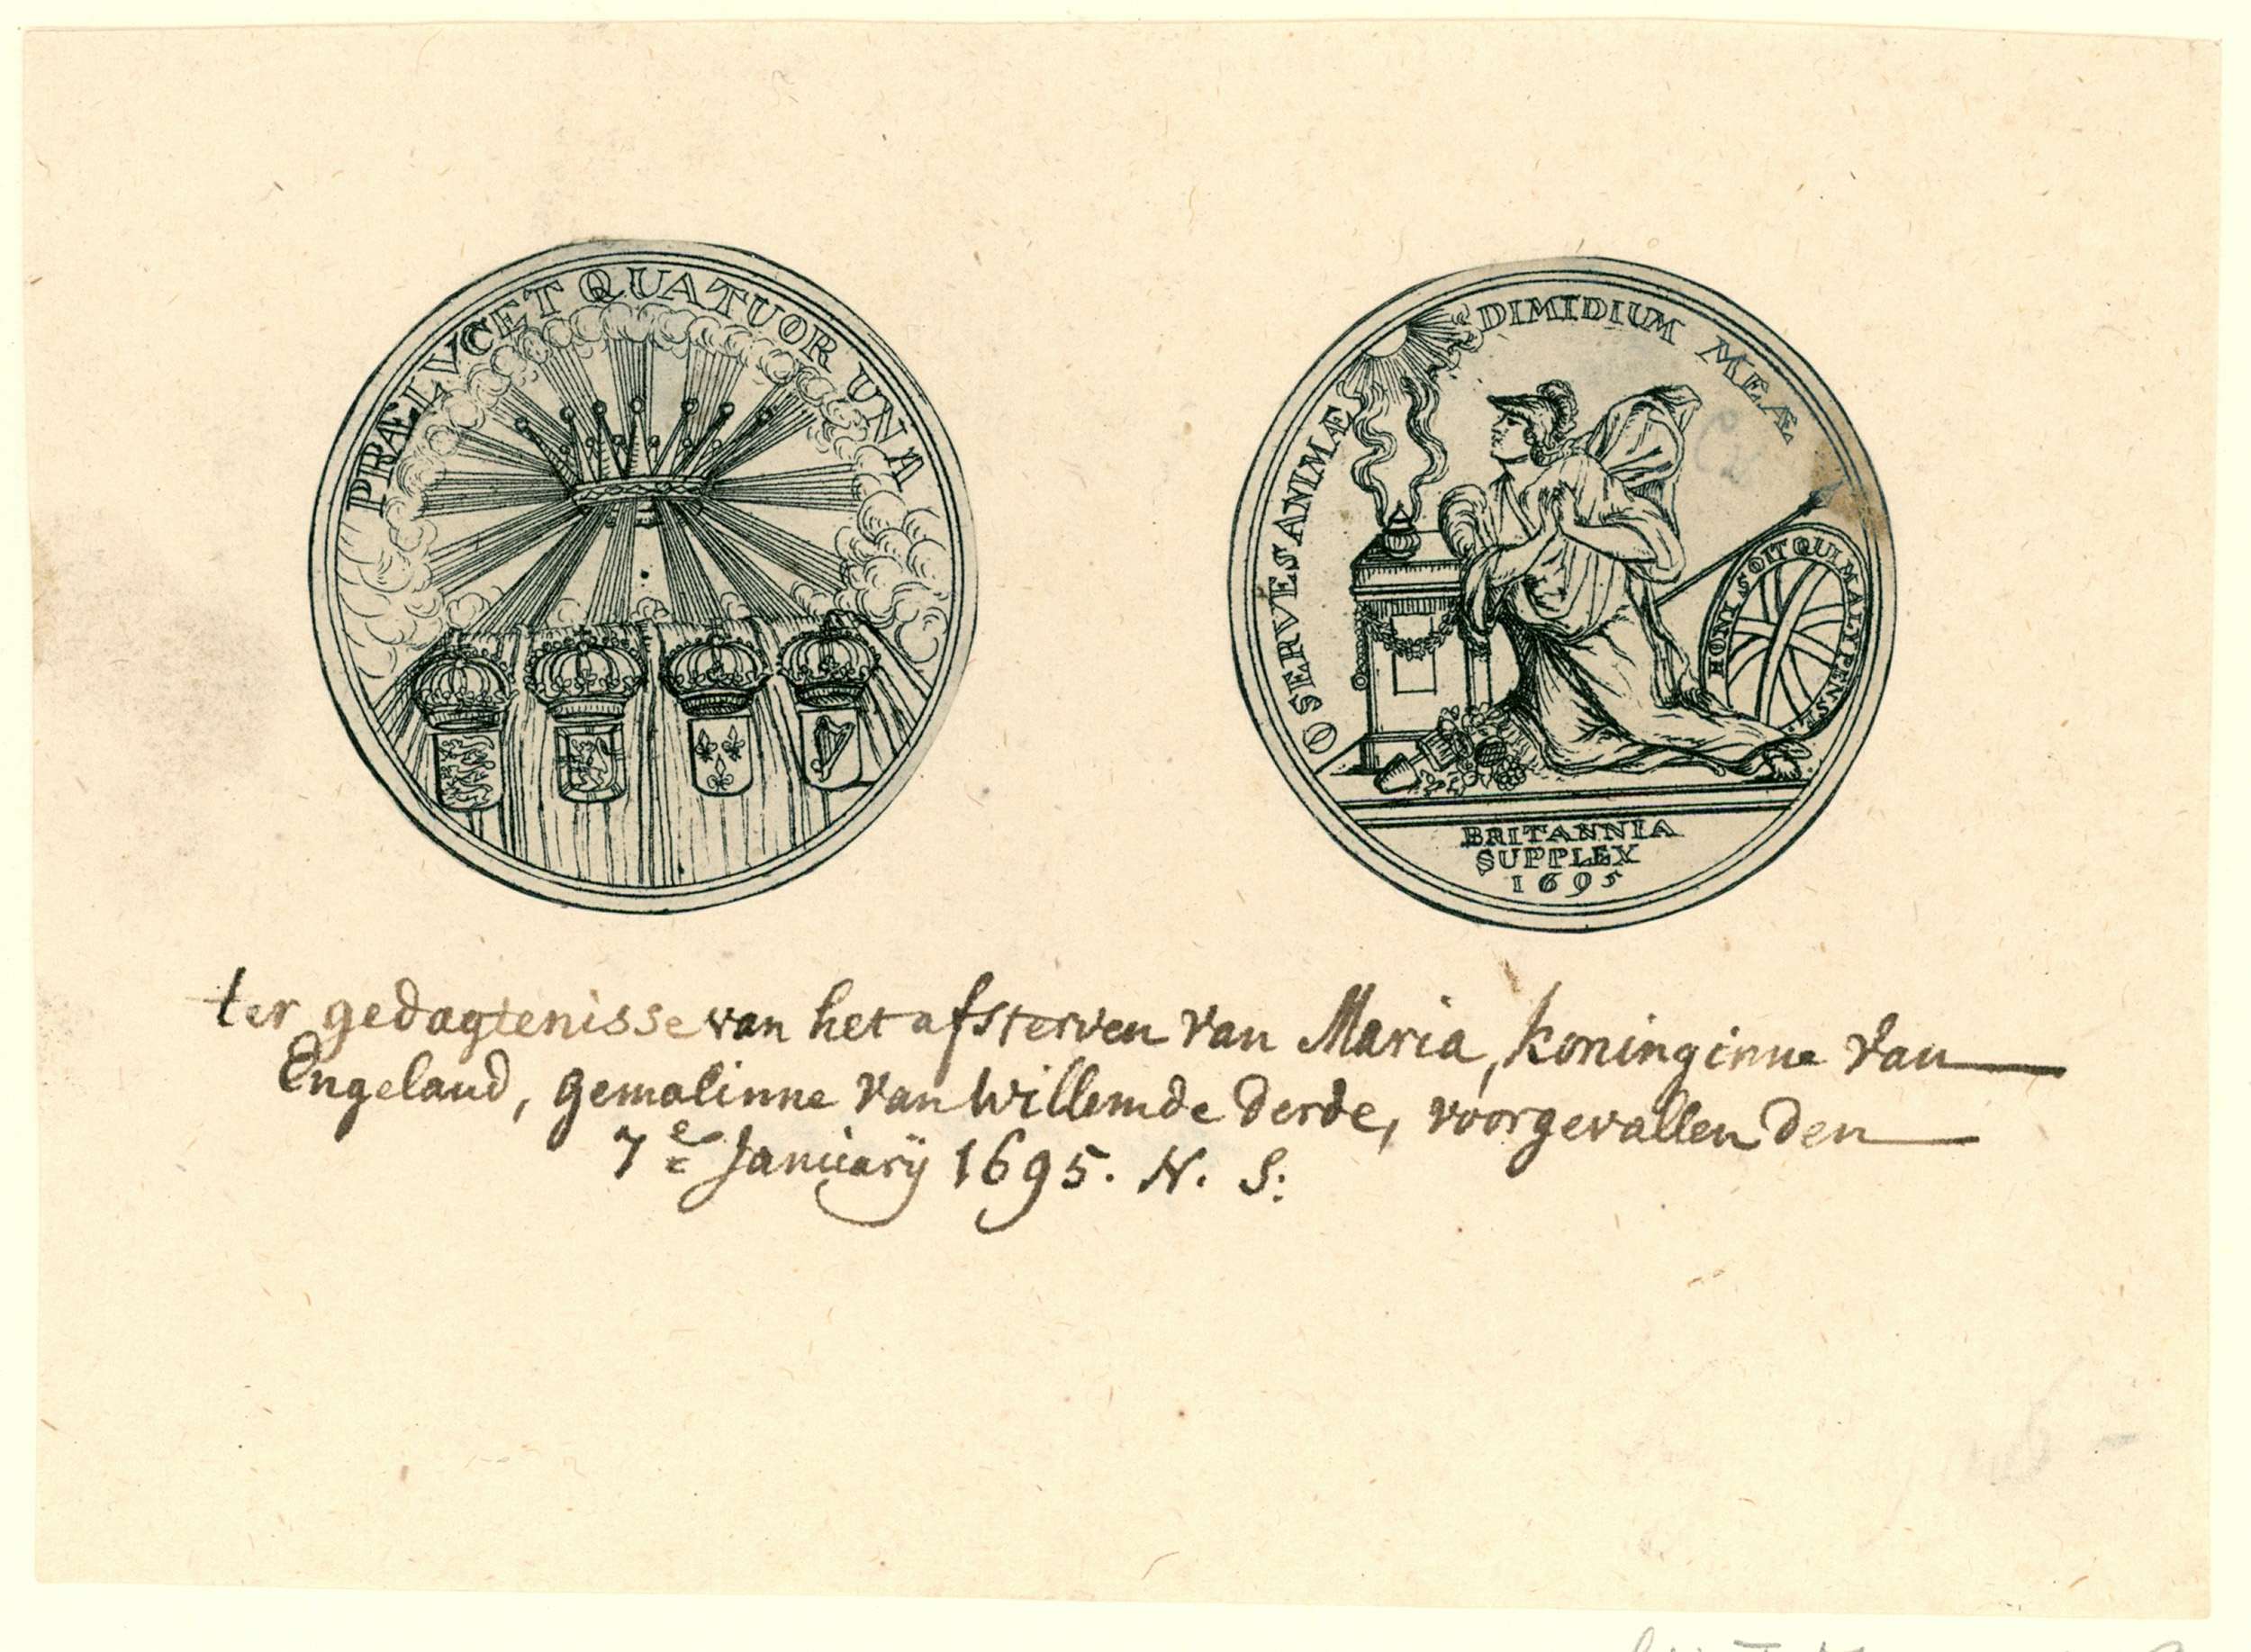 PRÆLVCET QUATUOR UNA
O SERVES ANIMÆ DIMIDIUM MEÆ
HONI SOIT QUI MAL Y PENSE
BRITANNIA
SUPPLEX
1695
ter gedagtenisse van het afsterven van Maria, koninginne van
Engeland, gemalinne van Willem de derde, voorgevallen den
7e January 1695. N. S: